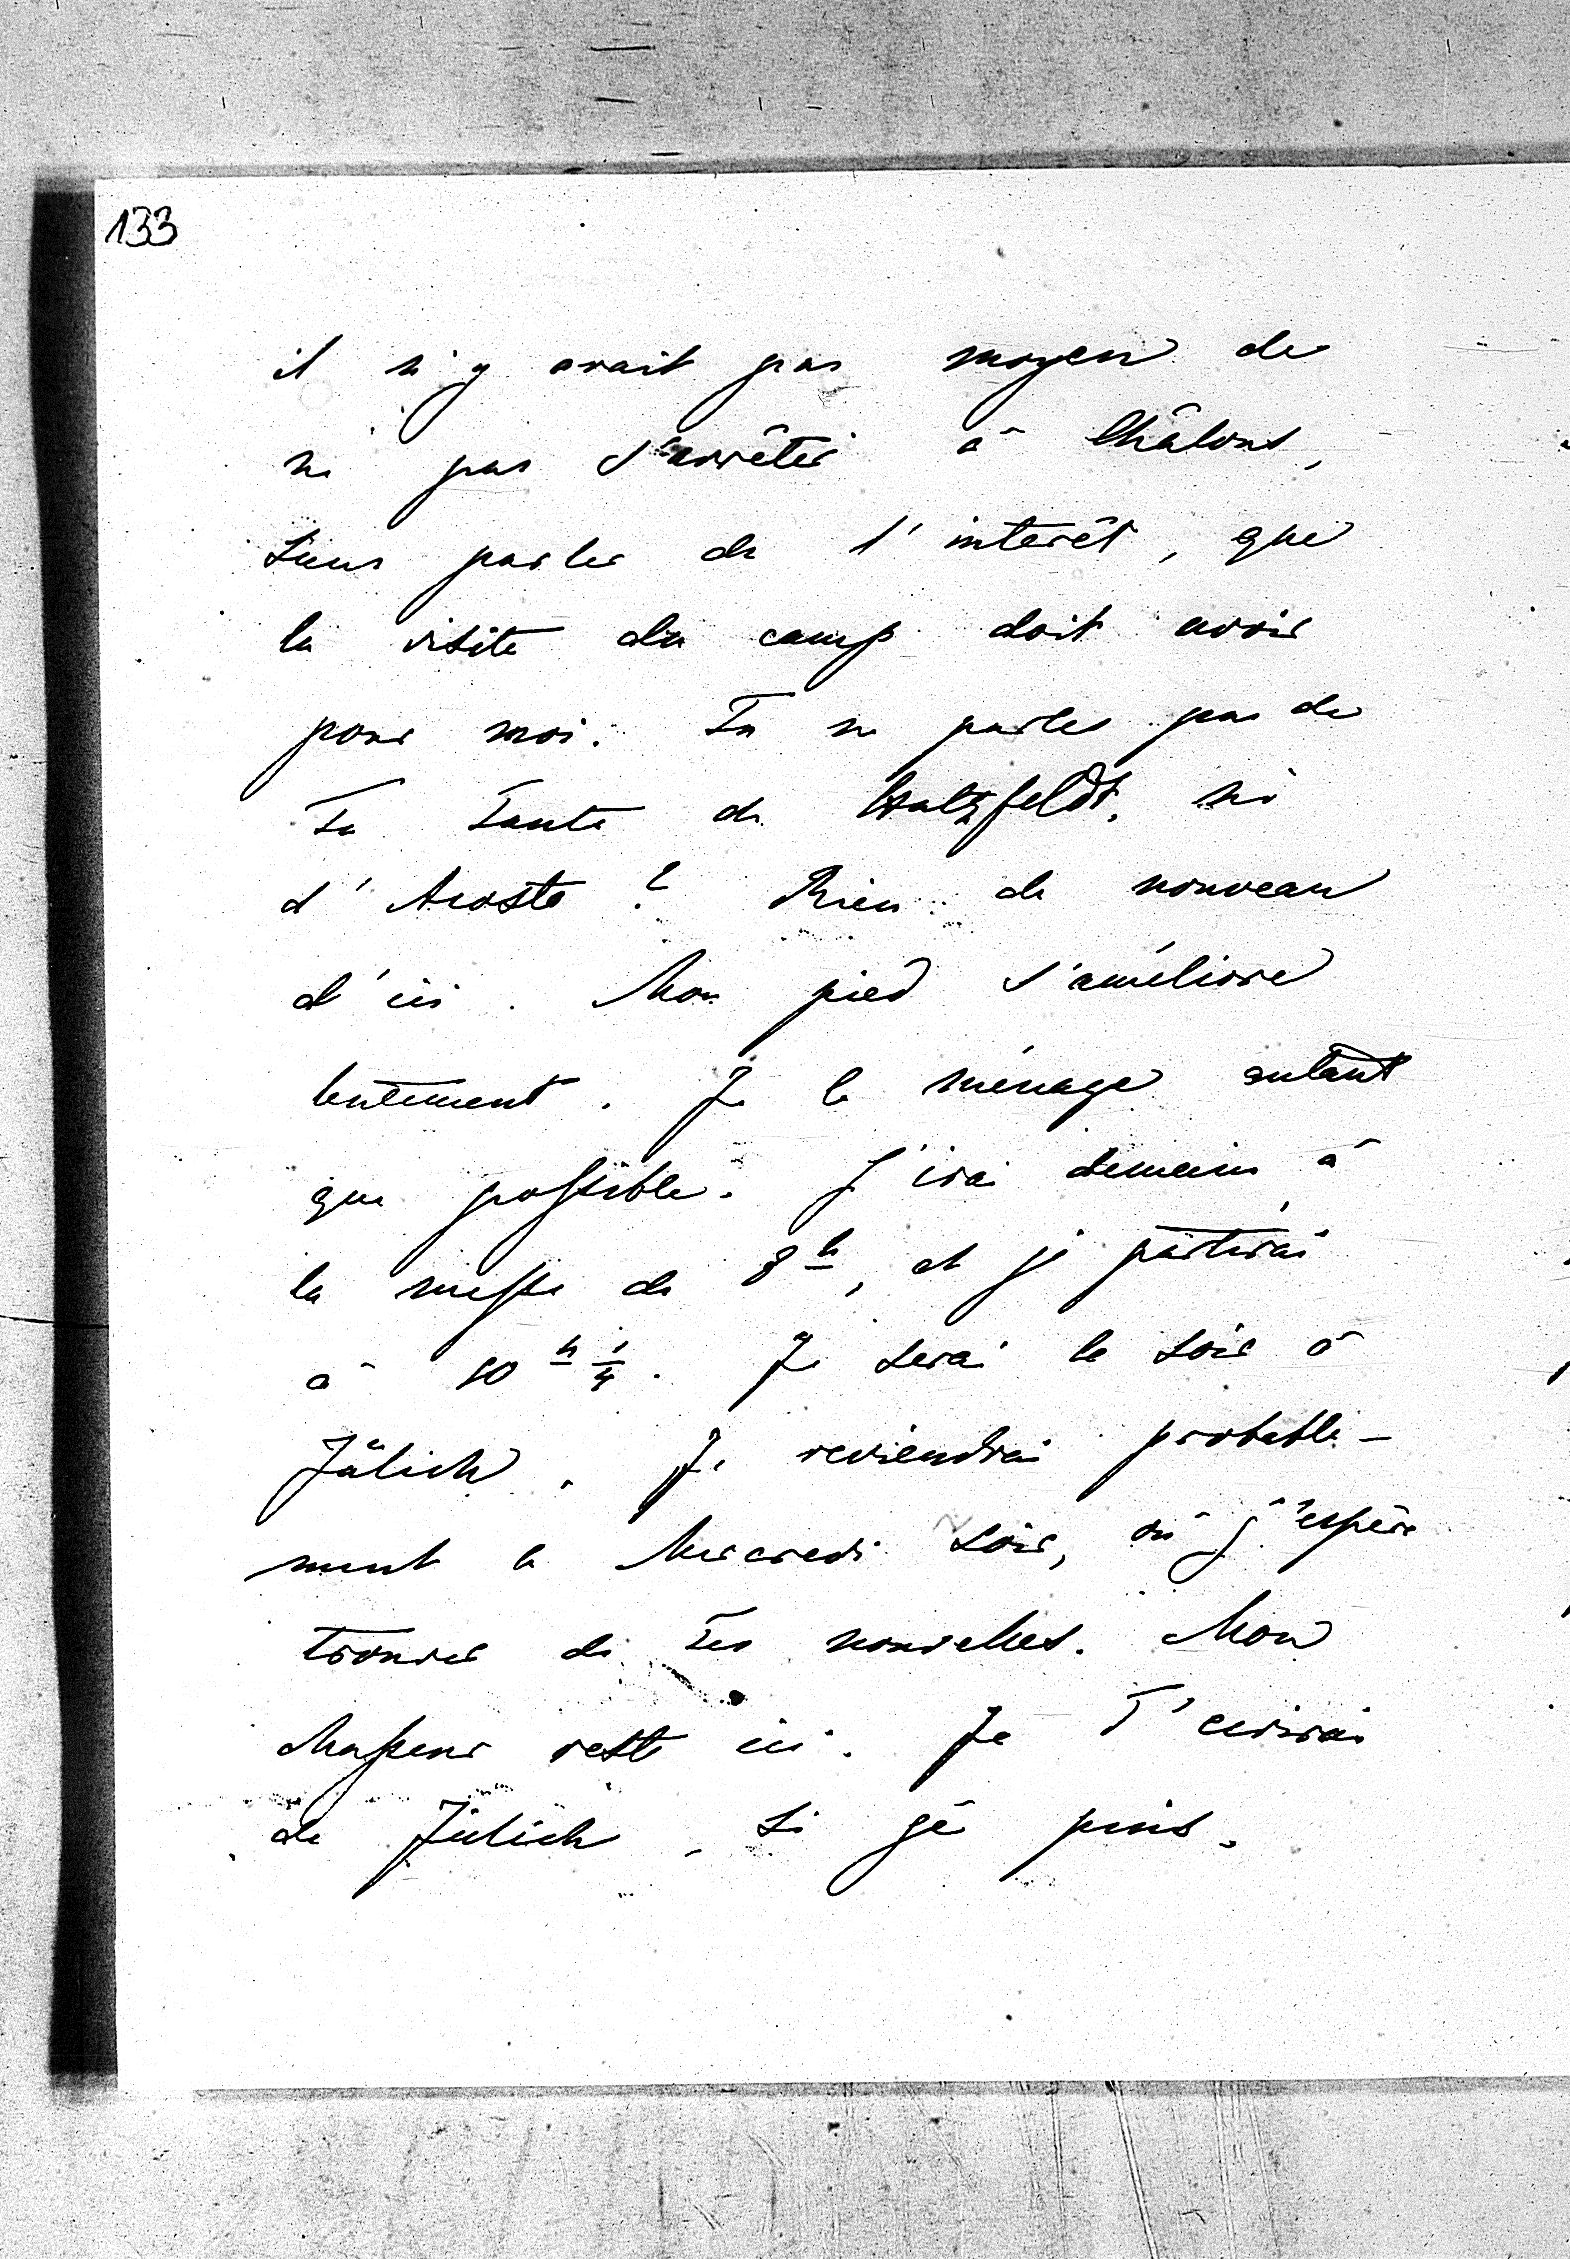 133
il n'y avait pas moyen de
ne pas s'arrêter à Châlons,
sans parler de l'interêt, que
la visite du camp doit avoir
pour moi. Tu ne parles pas de
Ta Tante de Hatzfeldt, ni
d'Acosta? Rien de nouveau
d'ici. Mon pied s'améliore
lentement. Je le ménage autant
que possible. J'irai demain à
la messe de 8h, et je partirai
à 10h 1/4. Je serai le soir à
Jülich. Je reviendrai probable-
ment le Mercredi soir, où j'espère
trouver de Tes nouvelles. Mon
Masseur reste ici. Je T'ecrirai
de Jülich, si je puis.